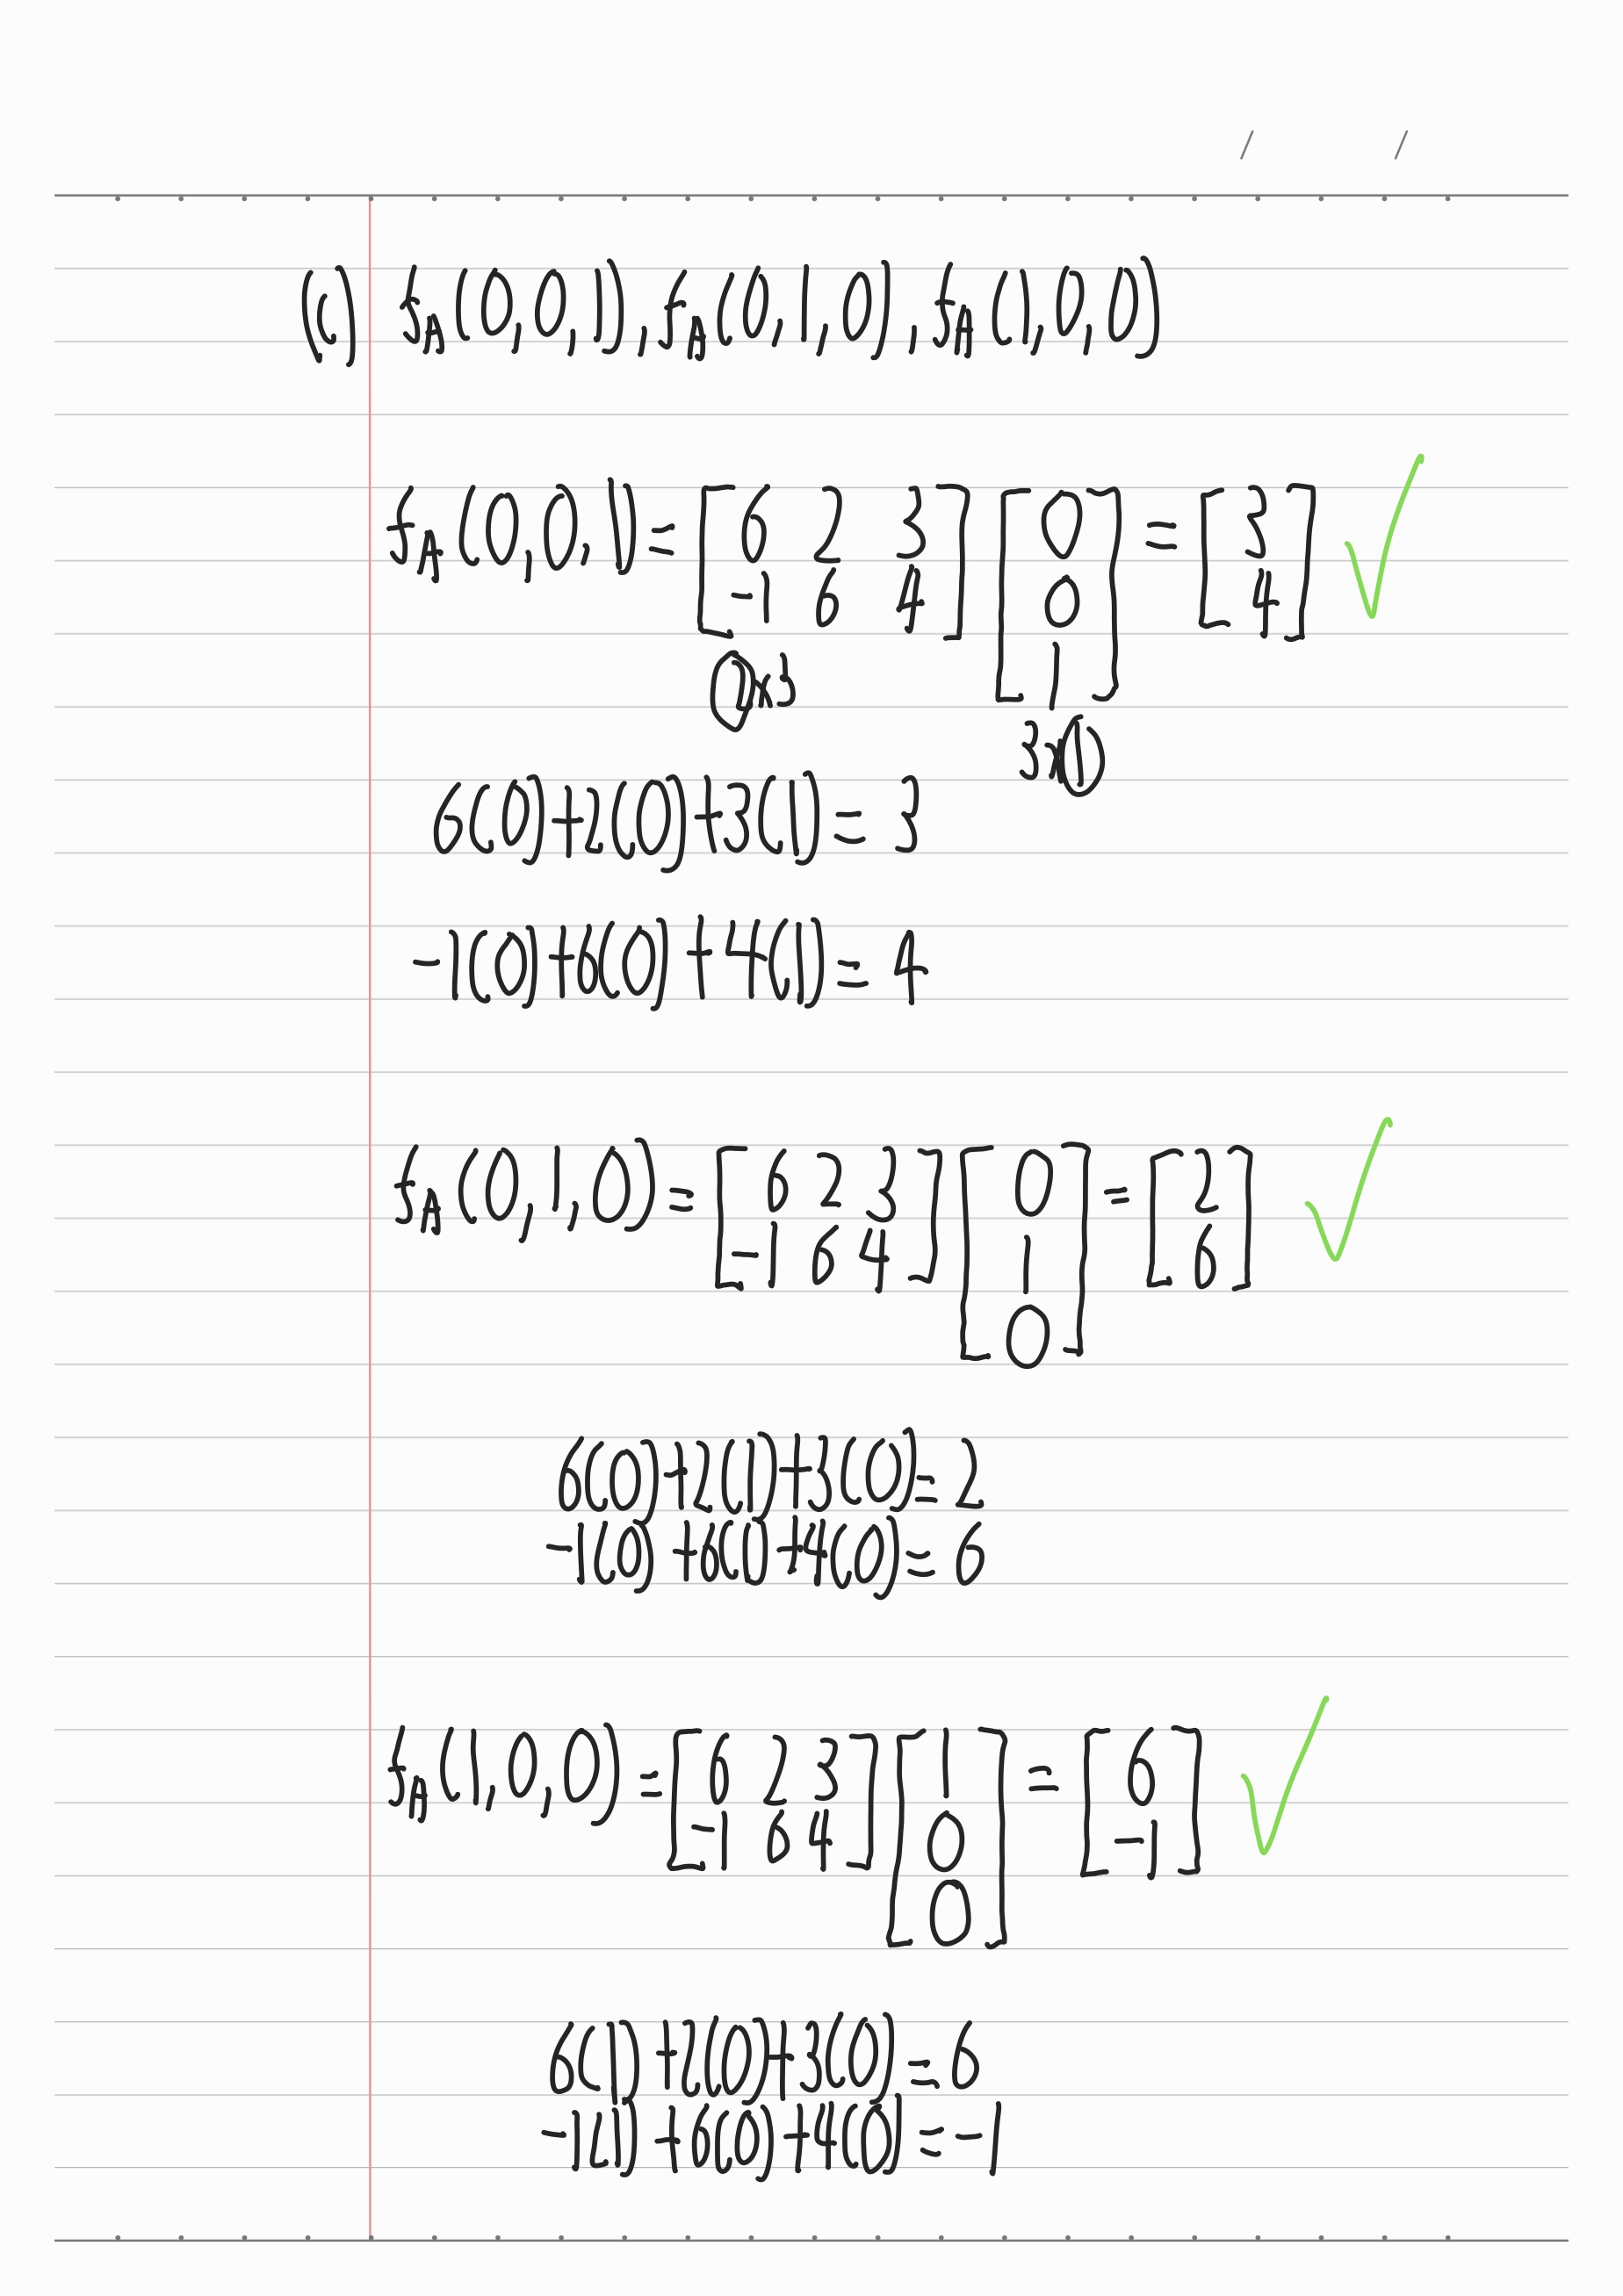 (c) f_A(0,0,1), f_A(0,1,0), f_A(1,0,0)
f_A(0,0,1) = [6 2 3; -1 6 4] [0; 0; 1] = [3; 4] ✓
2x3
3x1
6(0)+2(0)+3(1) = 3
-1(0)+6(0)+4(1) = 4
f_A(0,1,0) = [6 2 3; -1 6 4] [0; 1; 0] = [2; 6] ✓
6(0)+2(1)+3(0) = 2
-1(0)+6(1)+4(0) = 6
f_A(1,0,0) = [6 2 3; -1 6 4] [1; 0; 0] = [6; -1] ✓
6(1)+2(0)+3(0) = 6
-1(1)+6(0)+4(0) = -1